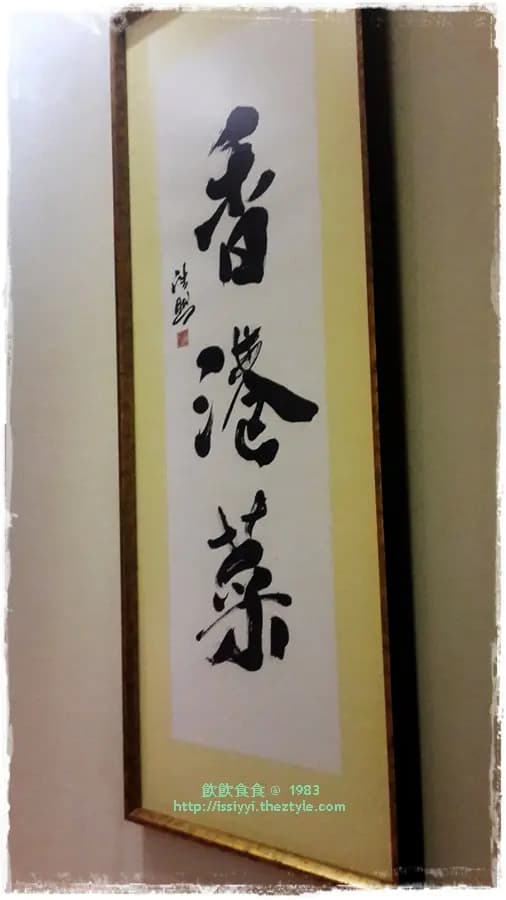 香港菜
飲飲食食 @ 1983
http://issiyyi.theztyle.com